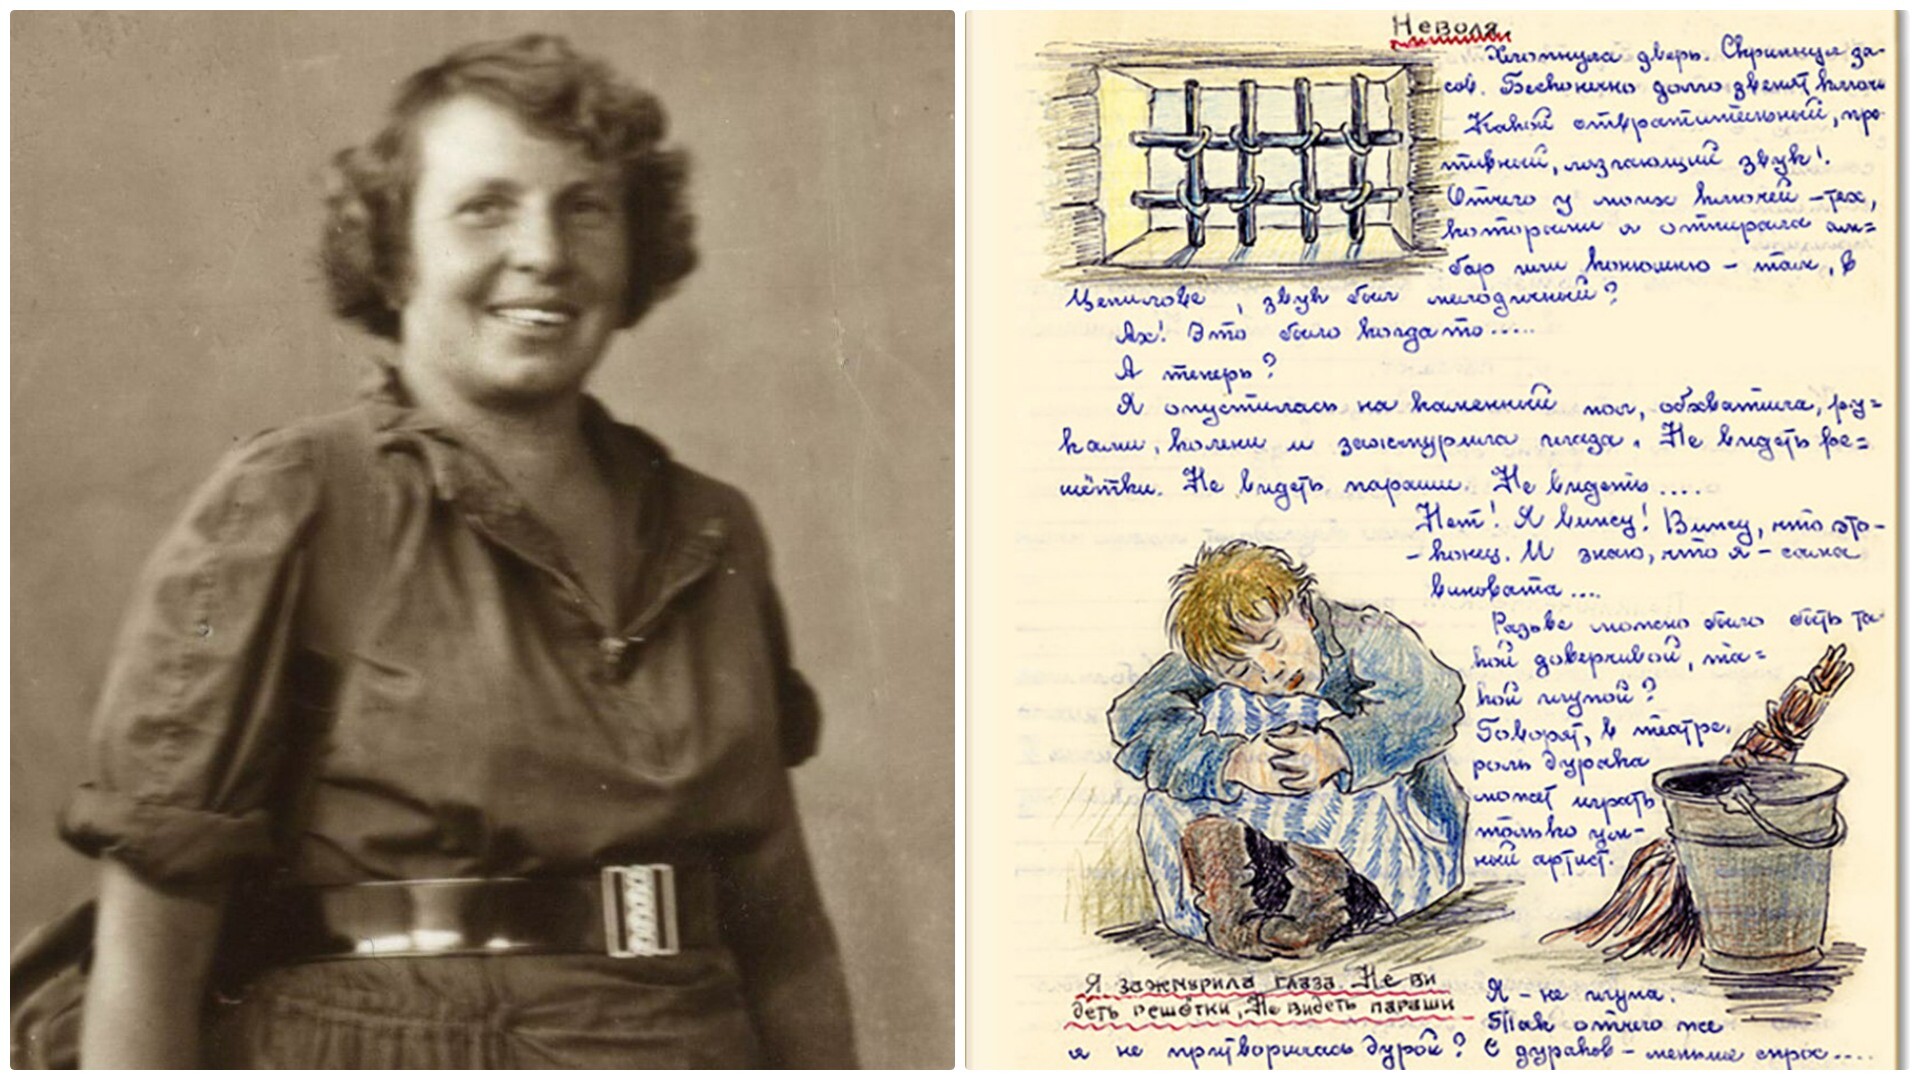 Неволя.
Хлопнула дверь. Скрипнул за-
сов. Бесконечно долго звенят ключи
Какой отвратительный, про-
тивный, лязгающий звук!
Отчего у моих ключей – тех,
которыми я отпирала ам=
бар или конюшню – там, в
Цепилове, звук был мелодичный?
Ах! Это было когда то.....
А теперь?
Я опустилась на каменный пол, обхватила, ру=
ками, колени и зажмурила глаза. Не видеть ре=
шётки. Не видеть параши. Не видеть ....
Нет! Я вижу! Вижу, что это –
– конец. И знаю, что я – сама
виновата ....
Разве можно было быть та-
кой доверчивой, та=
кой глупой?
Говорят, в театре,
роль дурака
может играть
только ум-
ный артист.
Я зажмурила глаза. Не ви
деть решётки, Не видеть параши
Я – не глупа.
Так отчего же
я не притворилась дурой? С дураков – меньше спрос....